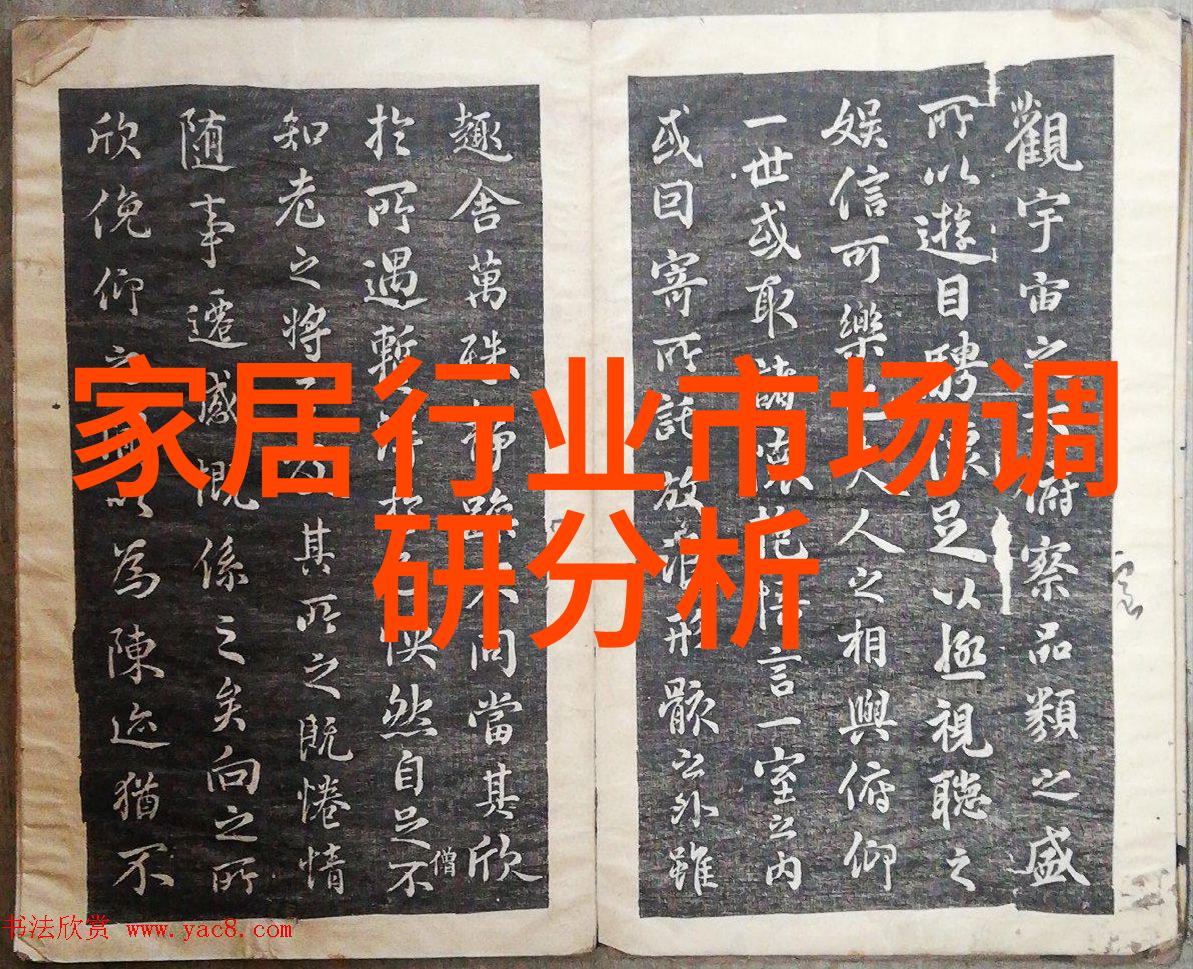 家居行业市场调
研分析
觀宇宙之大俯察品類之盛
所以遊目騁懷足以極視聽之
娛信可樂夫人之相與俯仰
一世或取諸懷抱悟言一室之內
或因寄所託放浪形骸之外雖
趣舍萬殊靜躁不同當其欣
於所遇暫得於快然自足不
僧
知老之將其所之既惓情
隨事遷感慨係之矣向之所
欣俛仰之以為陳迹猶不
书法欣赏 www.yac8.com